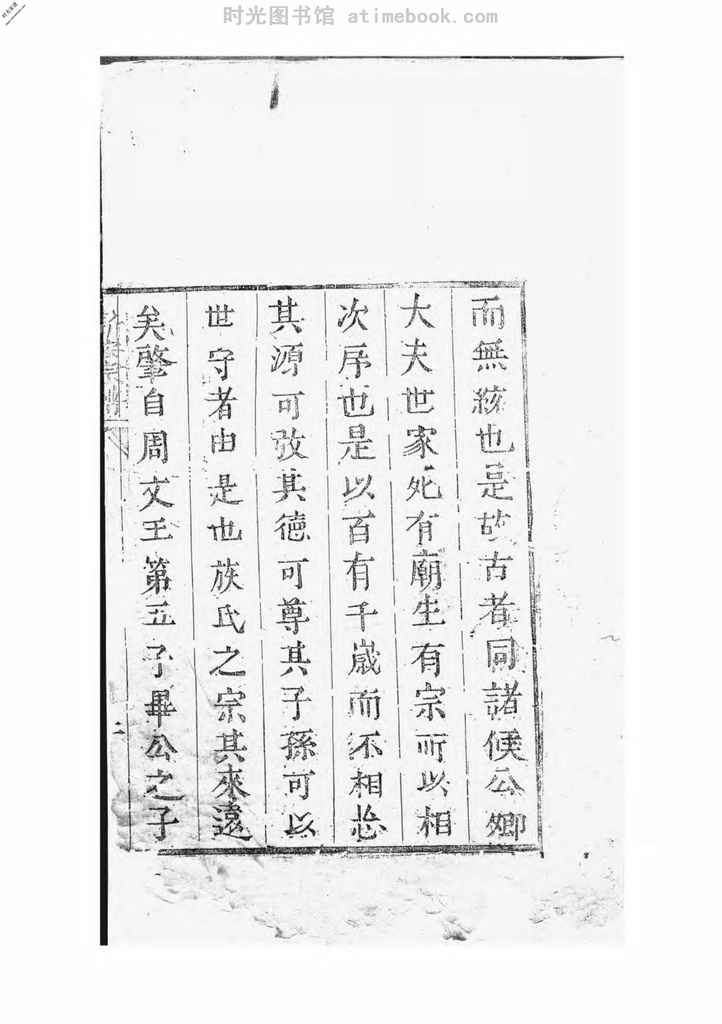 时光图书馆 atimebook.com
而無紊也是故古者同諸侯公卿
大夫世家死有廟生有宗所以相
次序也是以百有千嵗而不相
其源可攷其德可尊其子孫可以
世守者由是也族氏之宗其來遠
矣肇自周文王第五子畢公之子